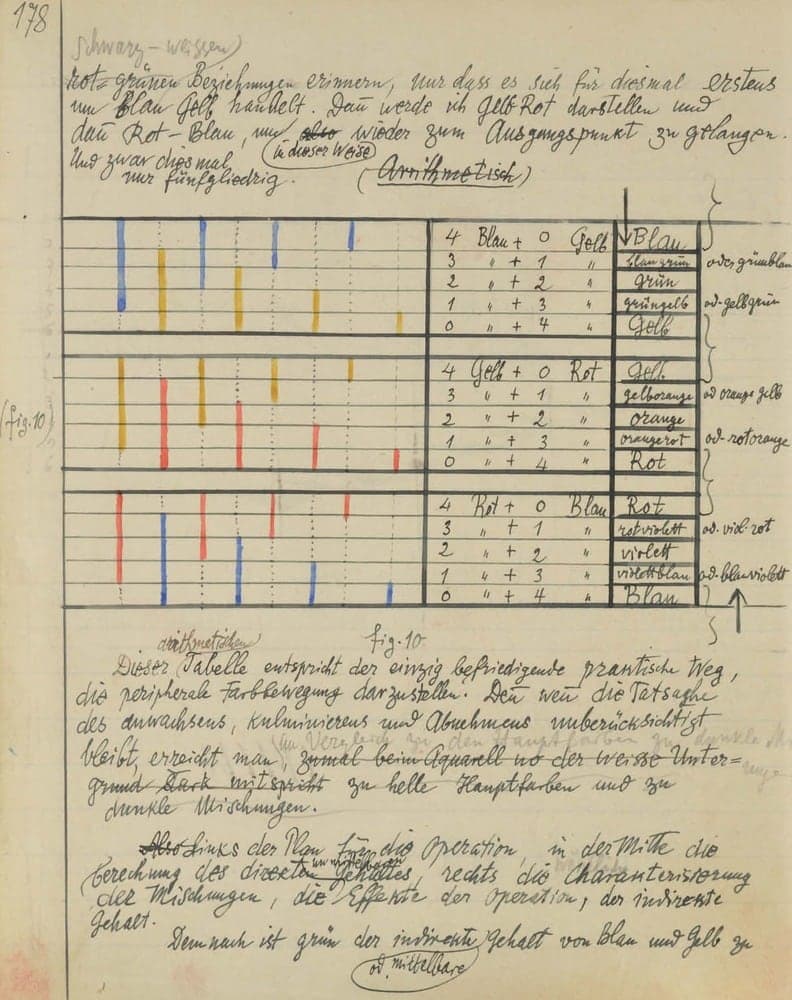 178
schwarz-weissen)
rot-grünen Beziehungen erinnern, nur dass es sich für diesmal erstens
um Blau Gelb handelt. Dañ werde ich Gelb-Rot darstellen und
dañ Rot-Blau, um also wieder zum Ausgangspunkt zu gelangen.
in dieser Weise
Und zwar diesmal
nur fünfgliedrig. (Arrithmetisch)
4 Blau + 0 Gelb Blau
3 " + 1 " blaugrün oder grünblau
2 " + 2 " grün
1 " + 3 " grüngelb od. gelbgrün
0 " + 4 " Gelb
(fig. 10)
4 Gelb + 0 Rot Gelb
3 " + 1 " gelborange od orange gelb
2 " + 2 " orange
1 " + 3 " orangerot od. rotorange
0 " + 4 " Rot
4 Rot + 0 Blau Rot
3 " + 1 " rotviolett od. viol-rot
2 " + 2 " violett
1 " + 3 " violettblau od. blauviolett
0 " + 4 " Blau
fig. 10
arithmetischen
Dieser Tabelle entspricht der einzig befriedigende praktische Weg,
die peripherale Farbbewegung darzustellen. Deñ weñ die Tatsache
des anwachsens, kulminierens und Abnehmens unberücksichtigt
im Vergleich zu den Hauptfarben zu dunkle
bleibt, erreicht man, zumal beim Aquarell wo der weisse Unter=
grund stark mitspricht zu helle Hauptfarben und zu
dunkle Mischungen.
Also links der Plan für die Operation, in der Mitte die
unmittelbaren
berechnung des direkten Gehaltes, rechts die Charakterisierung
der Mischungen, die Effekte der Operation, der indirekte
Gehalt.
Demnach ist grün der indirekte Gehalt von Blau und Gelb zu
od. mittelbare